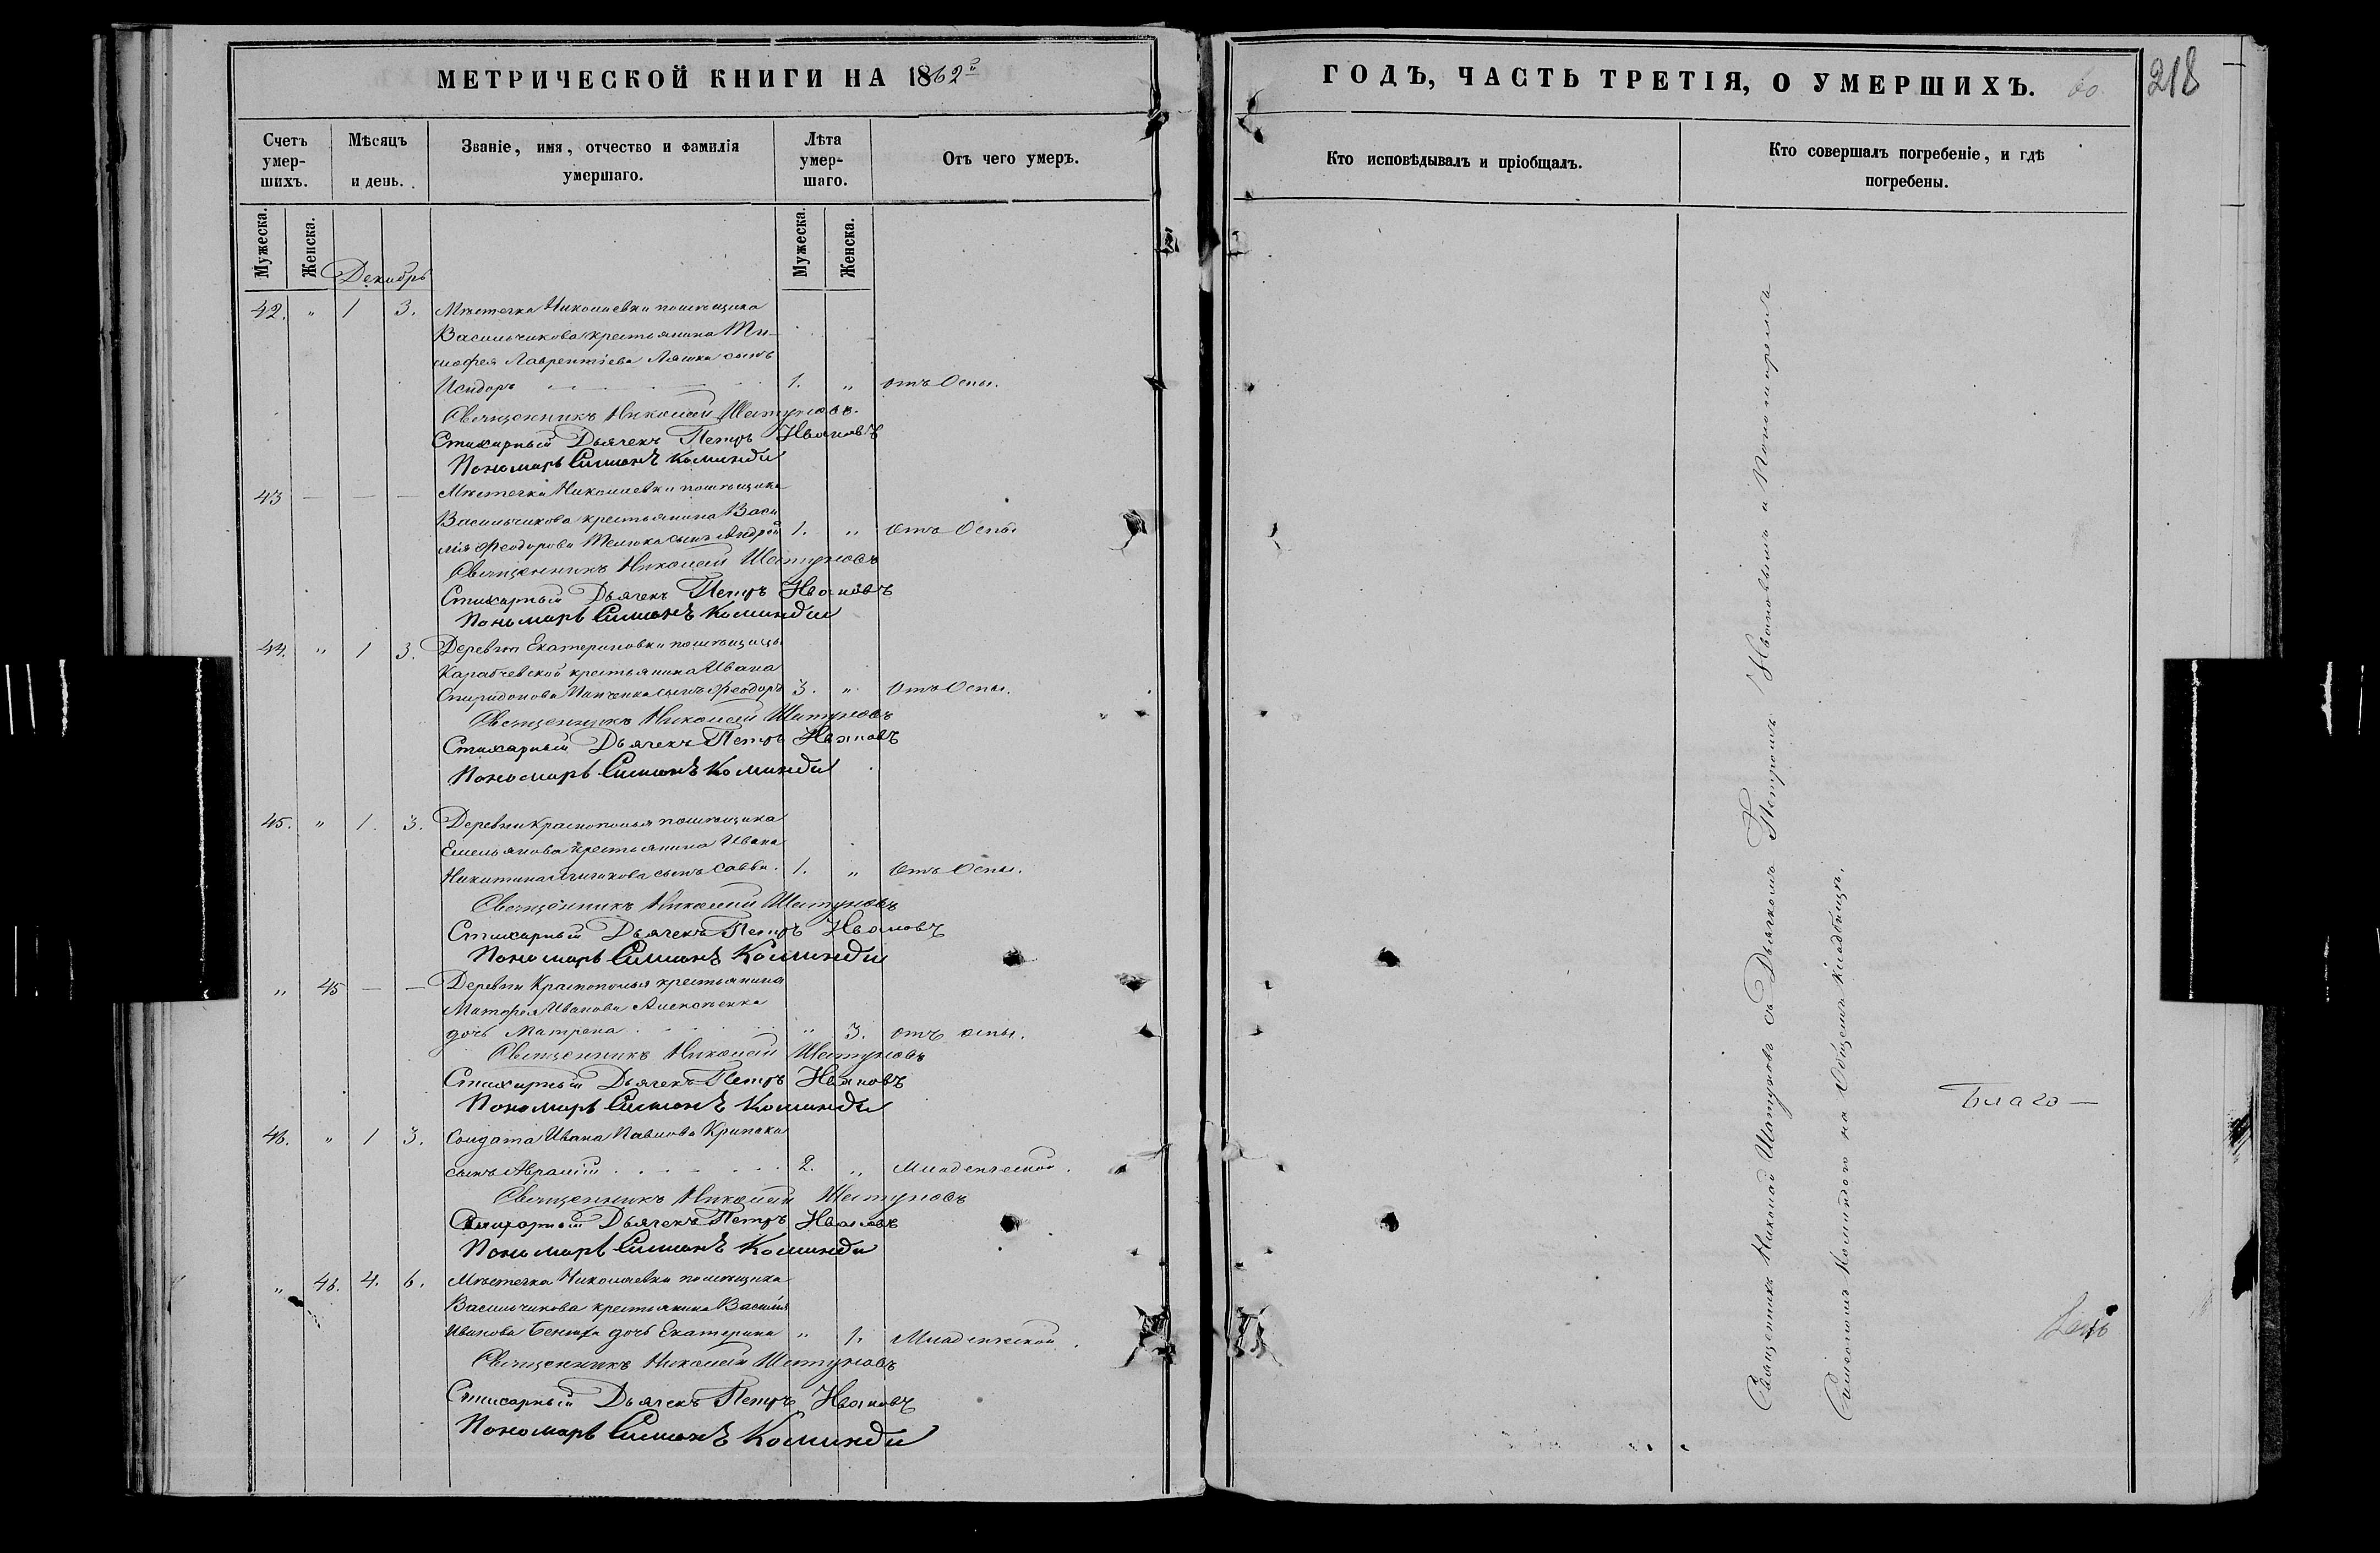 МЕТРИЧЕСКОЙ КНИГИ НА 1862й
Счетъ умер-шихъ. Мѣсяцъ и день. Званіе, имя, отчество и фамилія умершаго. Лѣта умер-шаго. Отъ чего умеръ.
Мужеска. Женска. Мужеска. Женска.
Декабрь
42. " 1 3. Мѣстечка Николаевки помѣщика
Васильчикова крестьянина Ти-
мофея Лаврентіева Ляшка сынъ
Исидоръ 1. " отъ Оспы.
Священникъ Николай Шатуновъ.
Стихарный Дьячекъ Петръ Ивановъ
Пономарь Симионъ Коминди
43 — — — Мѣстечка Николаевки помѣщика
Васильчикова крестьянина Васи
лія Феодорова сынъ Андрей 1. " Отъ Оспы
Священникъ Николай Шатуновъ
Стихарный Дьячекъ Петръ Ивановъ
Пономарь Симионъ Коминди
44. " 1 3. Деревни Екатериновки помѣщицы
Карабчевской крестьянина Ивана
Спиридонова сынъ Феодоръ 3. " Отъ Оспы.
Священникъ Николай Шатуновъ
Стихарный Дьячекъ Петръ Ивановъ
Пономарь Симионъ Коминди
45. " 1. 3. Деревни Краснополья помѣщика
Емельянова крестьянина Ивана
Никитина сынъ Савва. 1. " Отъ Оспы.
Священникъ Николай Шатуновъ
Стихарный Дьячекъ Петръ Ивановъ
Пономарь Симионъ Коминди
" 45 — — Деревни Краснополья крестьянина
Матфея Иванова
дочь Матрена 3. отъ оспы.
Священникъ Николай Шатуновъ
Стихарный Дьячекъ Петръ Ивановъ
Пономарь Симионъ Коминди
46. " 1 3. Солдата Ивана Павлова Крипака
сынъ Аврамій 2. " Младенческой.
Священникъ Николай Шатуновъ
Стихарный Дьячекъ Петръ Ивановъ
Пономарь Симионъ Коминди
" 46. 4. 6. Мѣстечка Николаевки помѣщика
Васильчикова крестьянина Василія
Иванова дочь Екатерина " 1. Младенческой.
Священникъ Николай Шатуновъ
Стихарный Дьячекъ Петръ Ивановъ
Пономарь Симионъ Коминди
ГОДЪ, ЧАСТЬ ТРЕТІЯ, О УМЕРШИХЪ. 218
Кто исповѣдывалъ и пріобщалъ. Кто совершалъ погребеніе, и гдѣ погребены.
Священникъ Николай Шатуновъ съ Дьячкомъ Петромъ Ивановымъ и Пономаремъ
Симеономъ Коминдою на Общемъ кладбищѣ.
Благо—